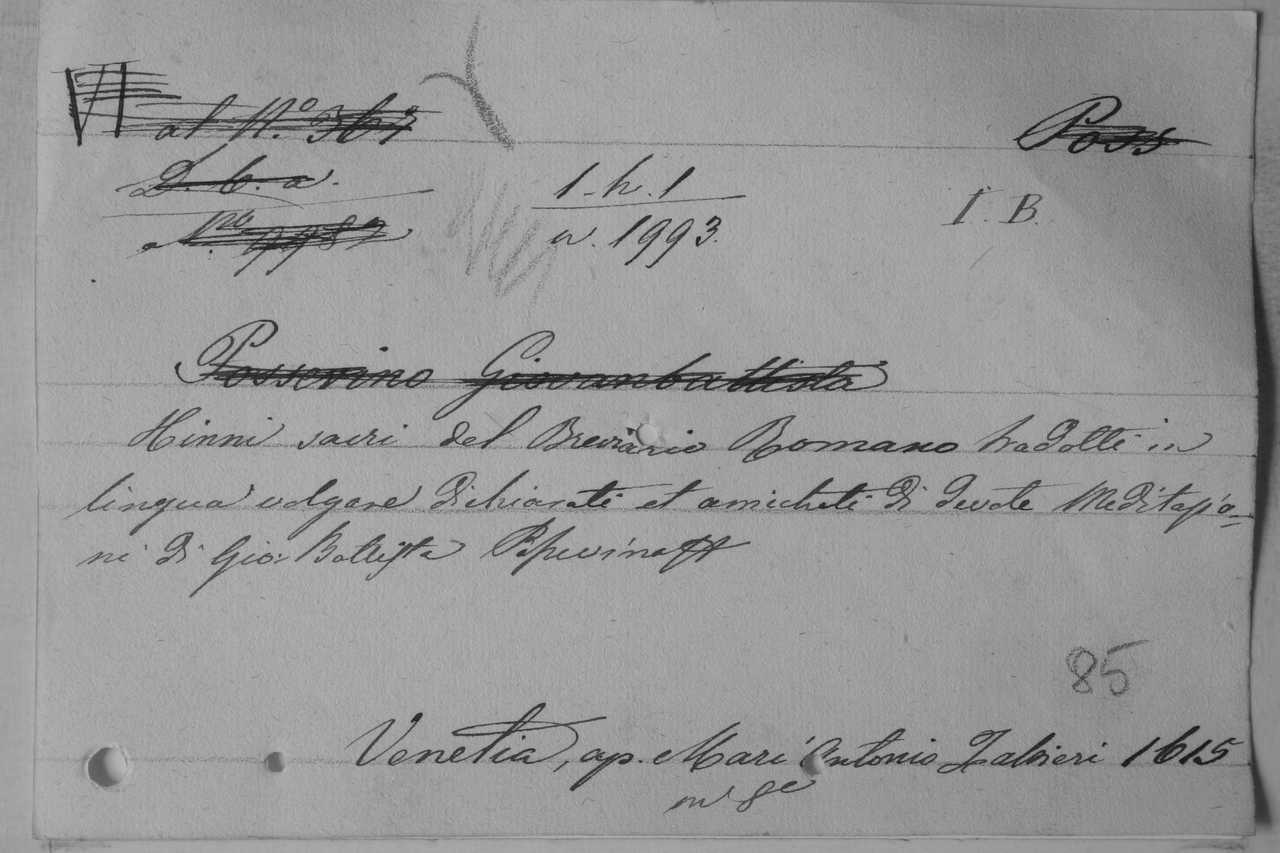 VI al N.º 367
Poss
D. b. a.
1. h. 1
I. B.
a. 1993.
Possevino Giovanbattista
Hinni sacri del Breviario Romano tradotti in
lingua volgare dichiarati et arricheti di devote Meditatio=
ni di Gio: Battista Possevino
85
Venetia, ap. Mari Antonio Zaltieri 1615
in 8e